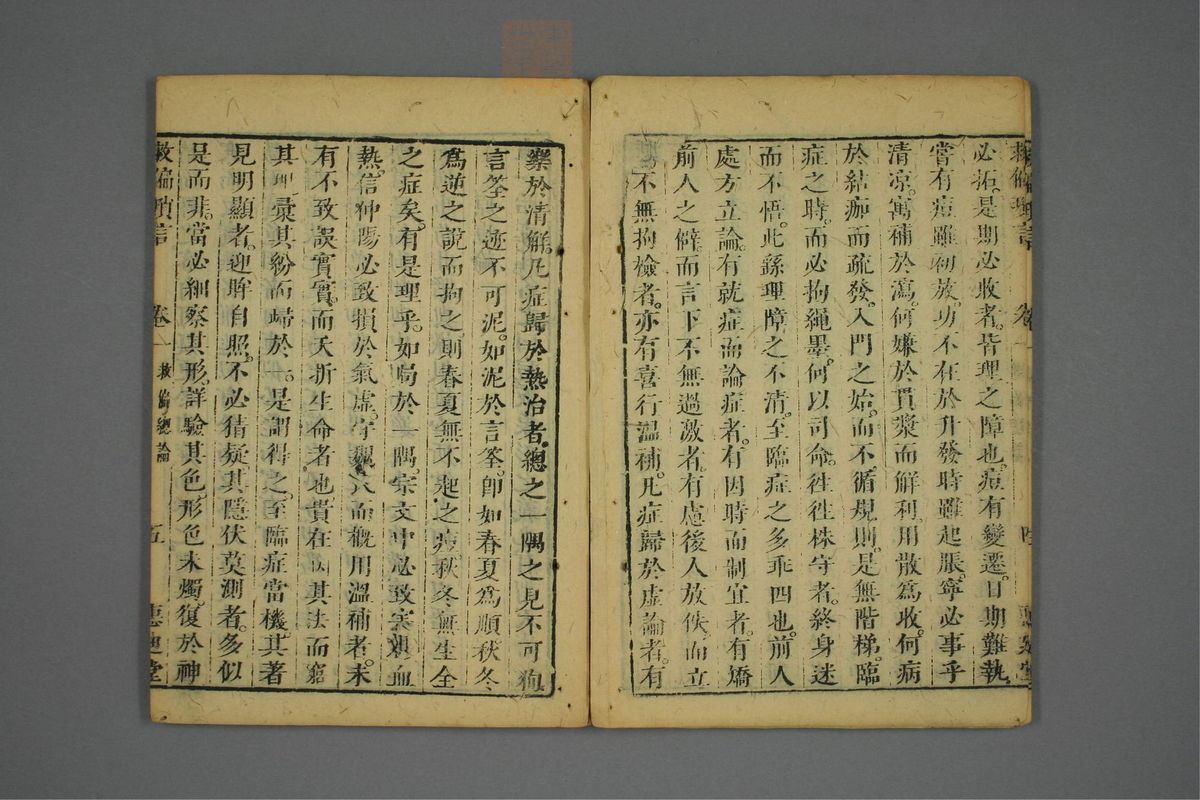 救偏瑣言 卷一 四 惠迪堂
必拓是期必收者皆理之障也痘有變遷日期難執
嘗有痘雖初放功不在於升發時雖起脹寧必事乎
清凉寓補於瀉何嫌於貫漿而解利用散為收何病
於結痂而疏發入門之始而不循規則是無階梯臨
症之時而必拘繩墨何以司命徃徃株守者終身迷
而不悟此繇理障之不清至臨症之多乖四也前人
處方立論有就症而論症者有因時而制宜者有矯
前人之僻而言下不無過激者有慮後人放佚而立
不無拘檢者亦有喜行温補凡症歸於虛論者有
樂於清解凡症歸於熱治者總之一隅之見不可狥
言筌之迹不可泥如泥於言筌卽如春夏為順秋冬
為逆之說而拘之則春夏無不起之痘秋冬無生全
之症矣有是理乎如局於一隅宗文中必致寒凝血
熱信仲陽必致損於氣虛守而概用溫補者未
有不致誤實實而夭折生命者也貴在因其法而窮
其理彙其紛而歸於一是謂得之至臨症當機其著
見明顯者迎眸自照不必猜疑其隱伏莫測者多似
是而非當必細察其形詳驗其色形色未燭復於神
救偏瑣言 卷一 救偏總論 五 惠迪堂